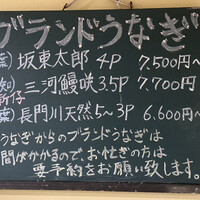 ブランドうなぎ
坂東太郎 4P 7.500円〜
三河鰻咲 3.5P 7.700円
新仔
長門川天然 5〜3P 6.600円〜
うなぎからのブランドうなぎは
間がかかるので、お忙ぎの方は
要予約をお願い致します。